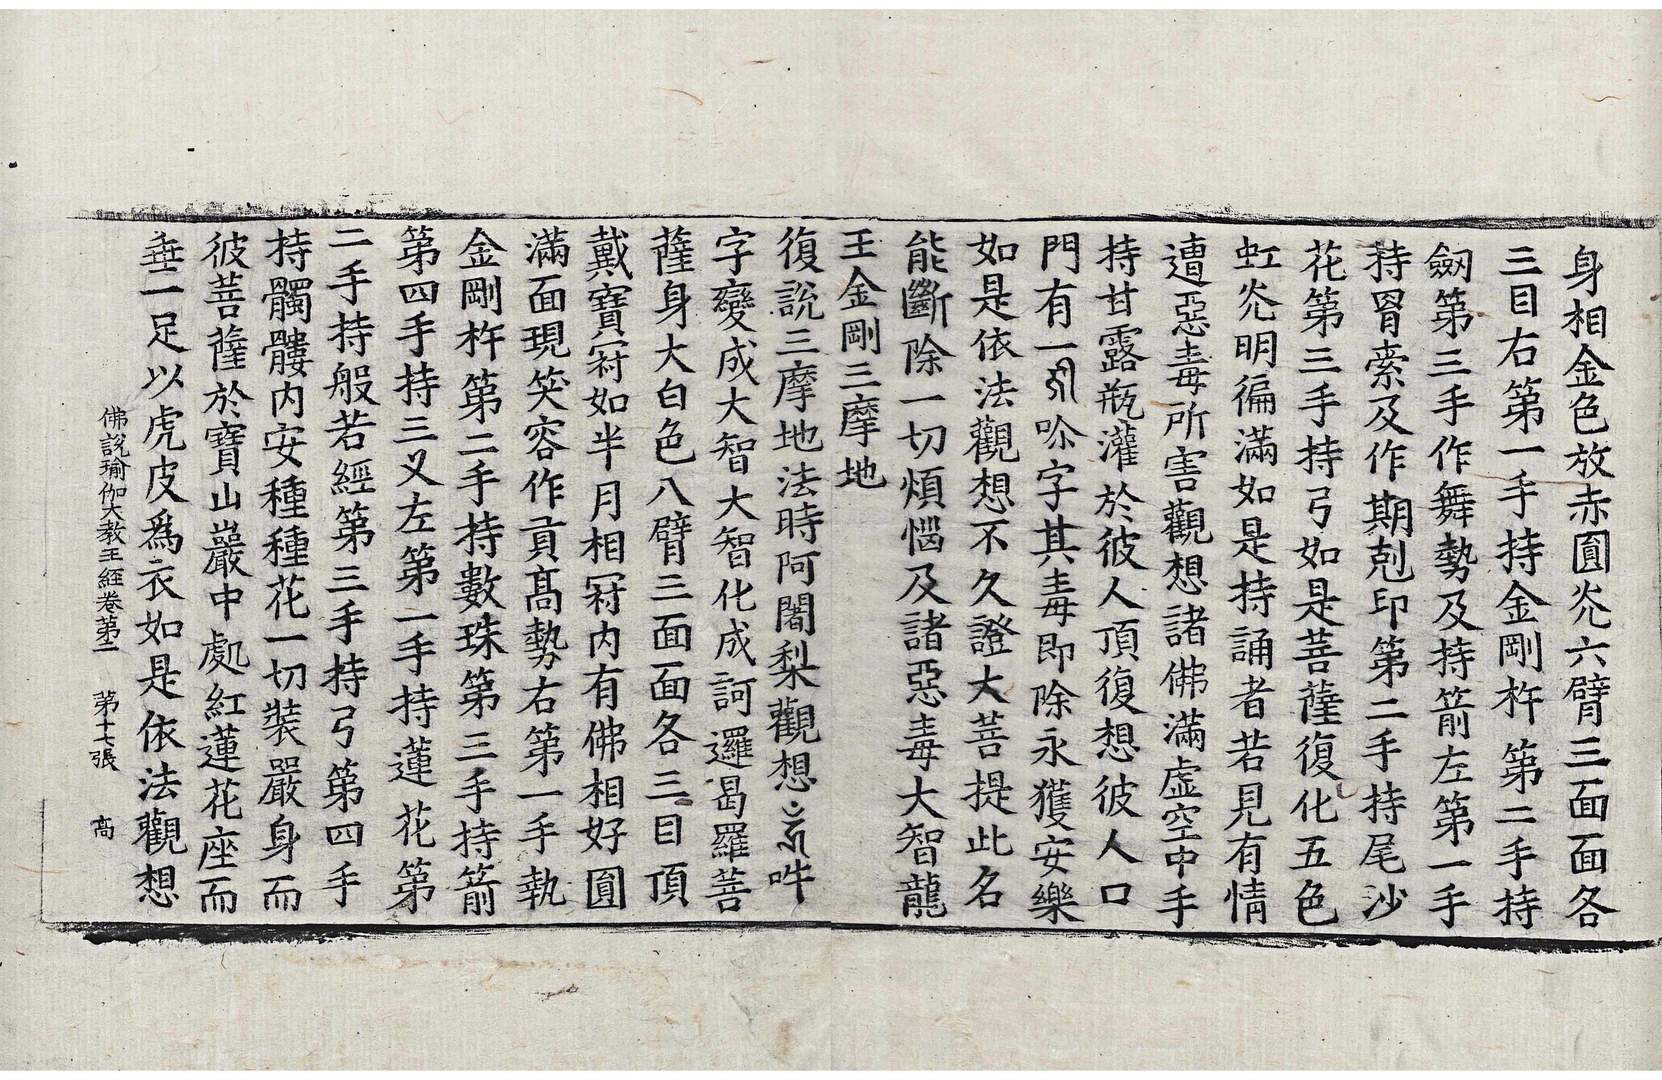 身相金色放赤圓焰六臂三面面各
三目右第一手持金剛杵第二手持
劒第三手作舞勢及持箭左第一手
持罥索及作期剋印第二手持尾沙
花第三手持弓如是菩薩復化五色
虹光明徧滿如是持誦者若見有情
遭惡毒所害觀想諸佛滿虛空中手
持甘露瓶灌於彼人頂復想彼人口
門有一吽字其毒即除永獲安樂
如是依法觀想不久證大菩提此名
能斷除一切煩惱及諸惡毒大智龍
王金剛三摩地
復說三摩地法時阿闍梨觀想吽
字變成大智大智化成訶邏曷羅菩
薩身大白色八臂三面面各三目頂
戴寶冠如半月相冠内有佛相好圓
滿面現笑容作貢高勢右第一手執
金剛杵第二手持數珠第三手持箭
第四手持三叉左第一手持蓮花第
二手持般若經第三手持弓第四手
持髑髏内安種種花一切裝嚴身而
彼菩薩於寶山巖中處紅蓮花座而
垂一足以虎皮爲衣如是依法觀想
佛說瑜伽大教王經卷第二 第十七張 高